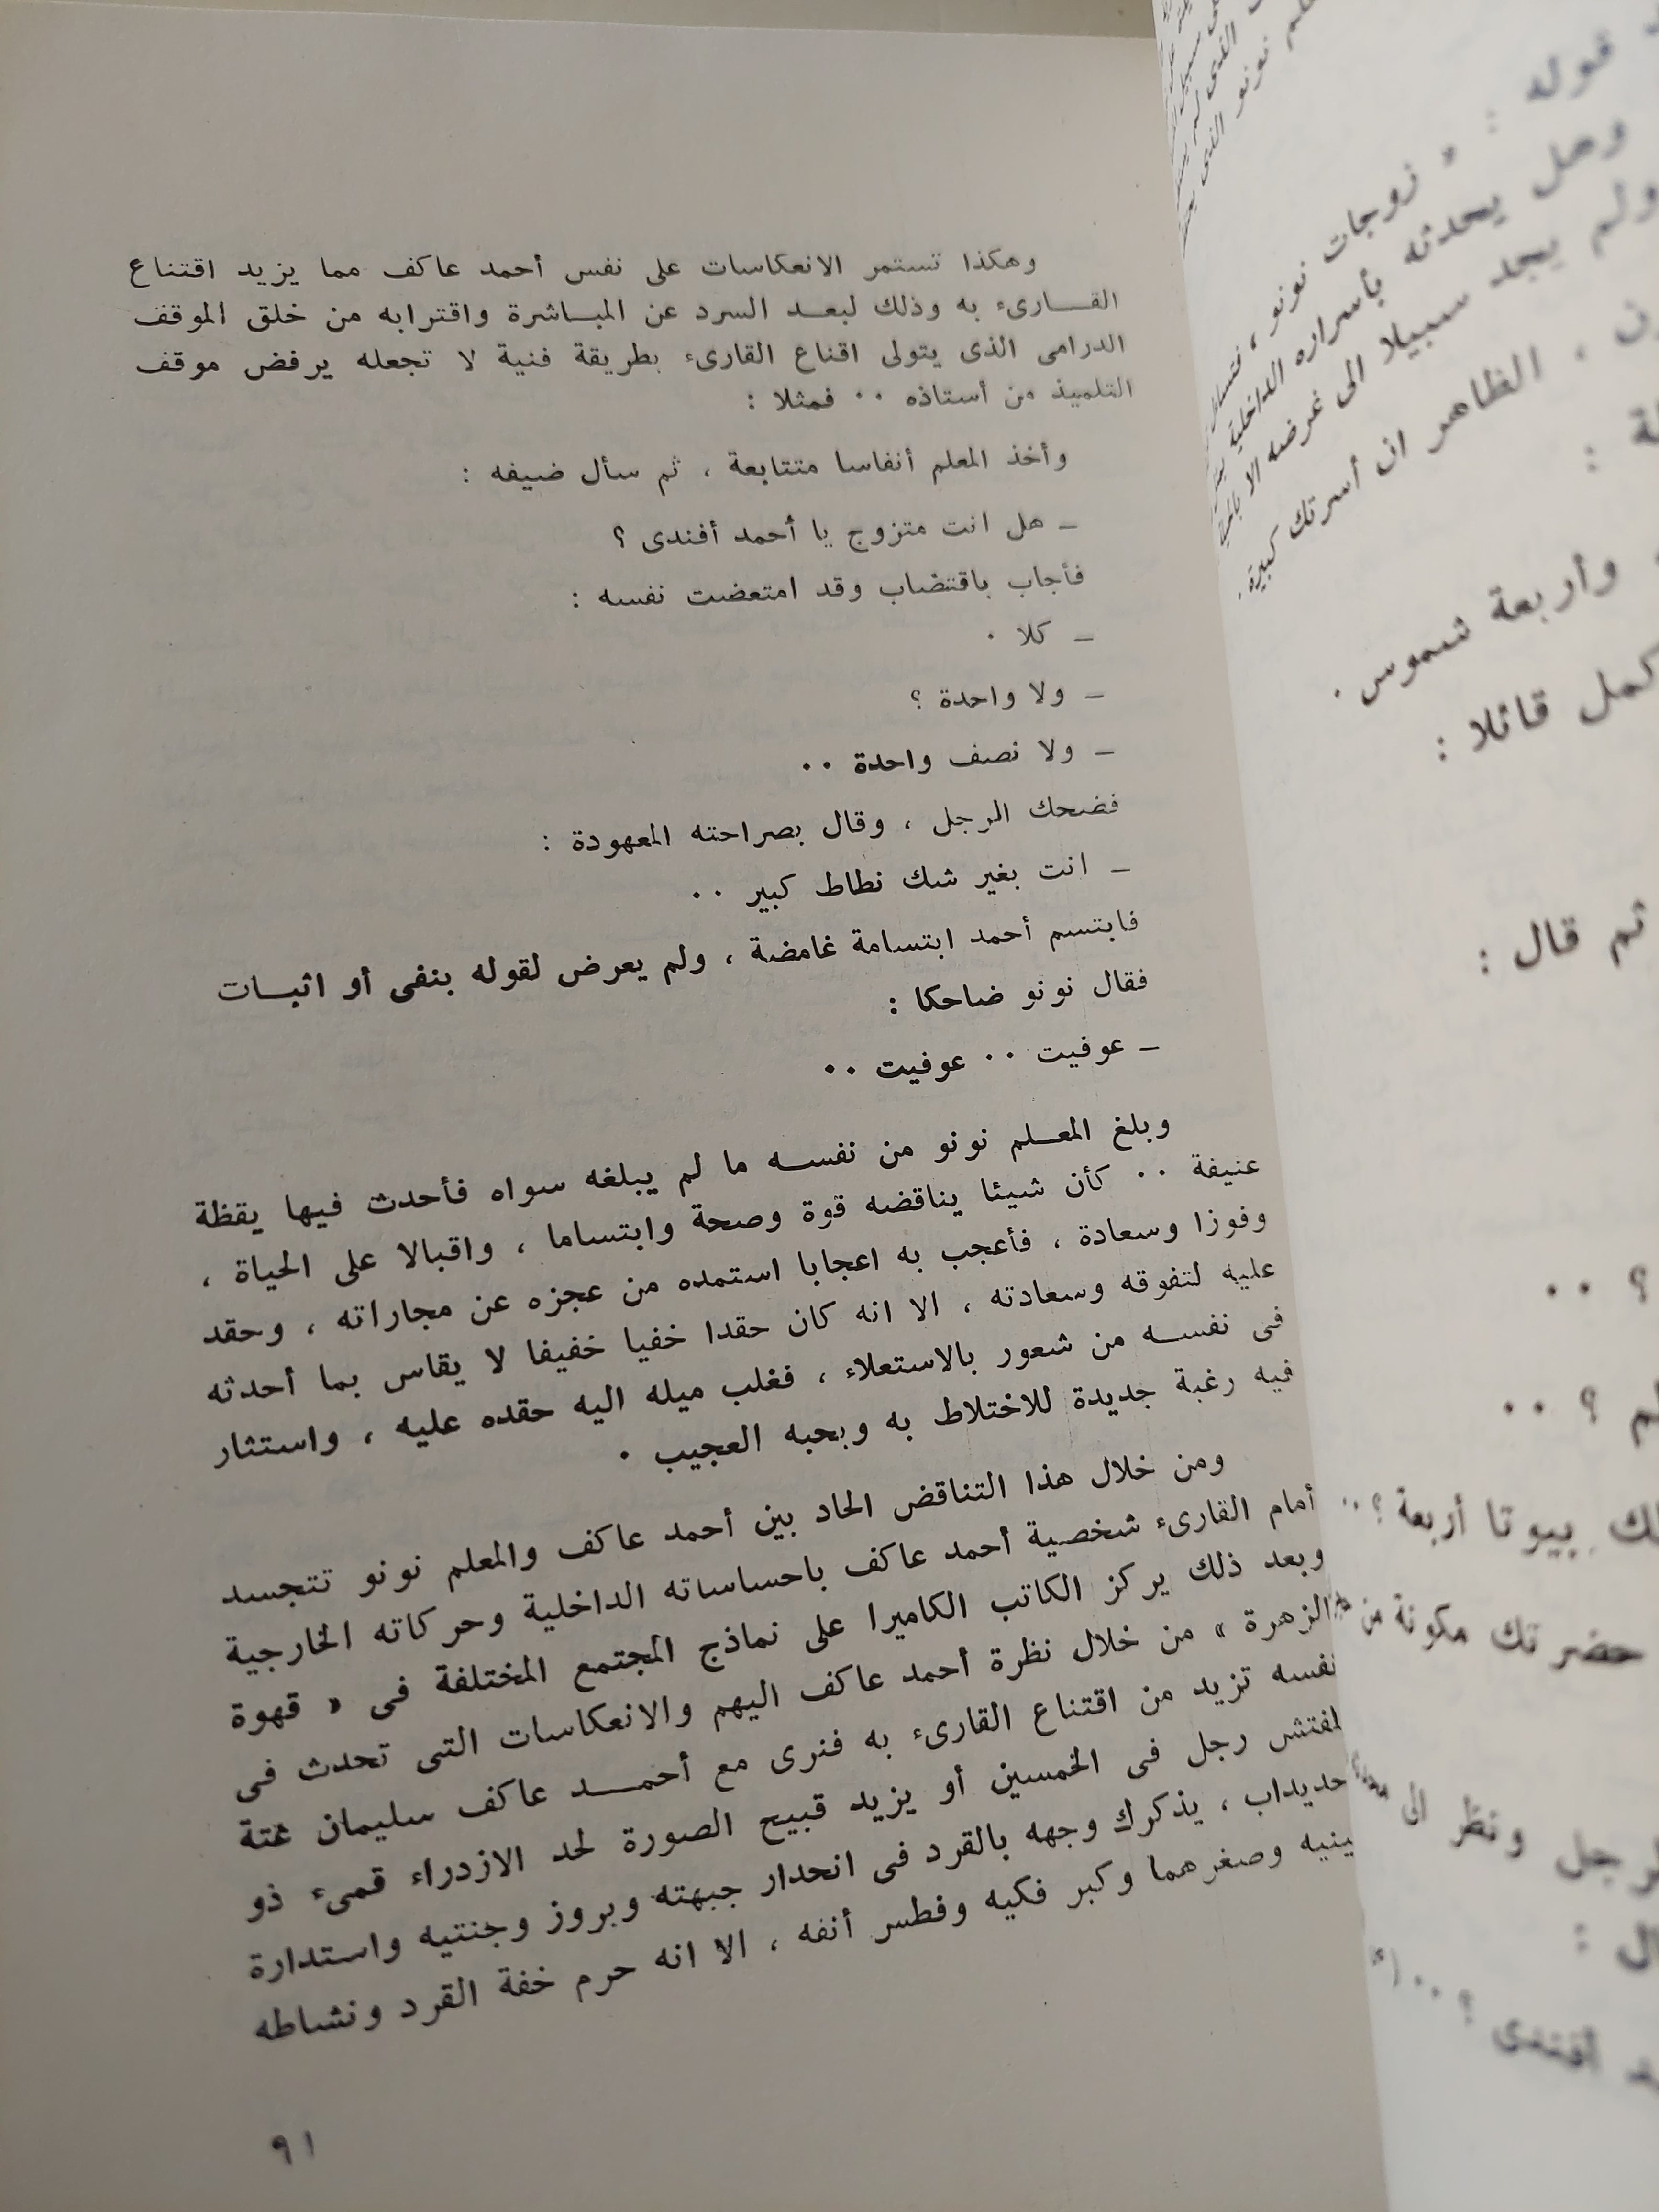 وهكذا تستمر الانعكاسات على نفس أحمد عاكف مما يزيد اقتناع
القـــارىء به وذلك لبعــد السرد عن المبـاشرة واقترابه من خلق الموقف
الدرامى الذى يتولى اقناع القارىء بطريقة فنية لا تجعله يرفض موقف
التلميذ من أستاذه ٠٠ فمثلا :
وأخذ المعلم أنفاسا متتابعة ، ثم سأل ضيفه :
ــ هل انت متزوج يا أحمد أفندى ؟
فأجاب باقتضاب وقد امتعضت نفسه :
ــ كلا ٠
ــ ولا واحدة ؟
ــ ولا نصف واحدة ٠٠
فضحك الرجل ، وقال بصراحته المعهودة :
ــ انت بغير شك نطاط كبير ٠٠
فابتسم أحمد ابتسامة غامضة ، ولم يعرض لقوله بنفى أو اثبـات
فقال نونو ضاحكا :
ــ عوفيت ٠٠ عوفيت ٠٠
وبلغ المعــلم نونو من نفســه ما لم يبلغه سواه فأحدث فيها يقظة
عنيفة ٠٠ كأن شيئا يناقضه قوة وصحة وابتساما ، واقبالا على الحياة ،
وفوزا وسعادة ، فأعجب به اعجابا استمده من عجزه عن مجاراته ، وحقد
عليه لتفوقه وسعادته ، الا انه كان حقدا خفيا خفيفا لا يقاس بما أحدثه
فى نفســه من شعور بالاستعلاء ، فغلب ميله اليه حقده عليه ، واستثار
فيه رغبة جديدة للاختلاط به وبحبه العجيب ٠
ومن خلال هذا التناقض الحاد بين أحمد عاكف والمعلم نونو تتجسد
أمام القارىء شخصية أحمد عاكف باحساساته الداخلية وحركاته الخارجية
وبعد ذلك يركز الكاتب الكاميرا على نماذج المجتمع المختلفة فى « قهوة
الزهرة » من خلال نظرة أحمد عاكف اليهم والانعكاسات التى تحدث فى
نفسه تزيد من اقتناع القارىء به فنرى مع أحمــــد عاكف سليمان عتة
لمفتش رجل فى الخمسين أو يزيد قبيح الصورة لحد الازدراء قمىء ذو
حديداب ، يذكرك وجهه بالقرد فى انحدار جبهته وبروز وجنتيه واستدارة
ينيه وصغرهما وكبر فكيه وفطس أنفه ، الا انه حرم خفة القرد ونشاطه
٩١
قوله : « زوجات نونو ،
وهل يحدثه بأسراره الداخلية
ولم يجد سبيلا الى غرضه الا
، الظاهر ان أسرتك كبيرة ٠
وأربعة شموس ٠
كمل قائلا :
ثم قال :
؟ ٠٠
؟ ٠٠
بيوتا أربعة ؟ ٠٠
حضرتك مكونة من
ونظر الى
أفندى ؟ ٠٠